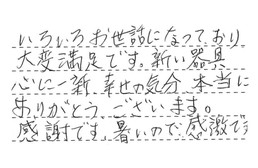 いろいろお世話になっており
大変満足です。新い器具
心に一新、幸せの気分 本当に
ありがとう、ございます。
感謝です、暑いので、感激です